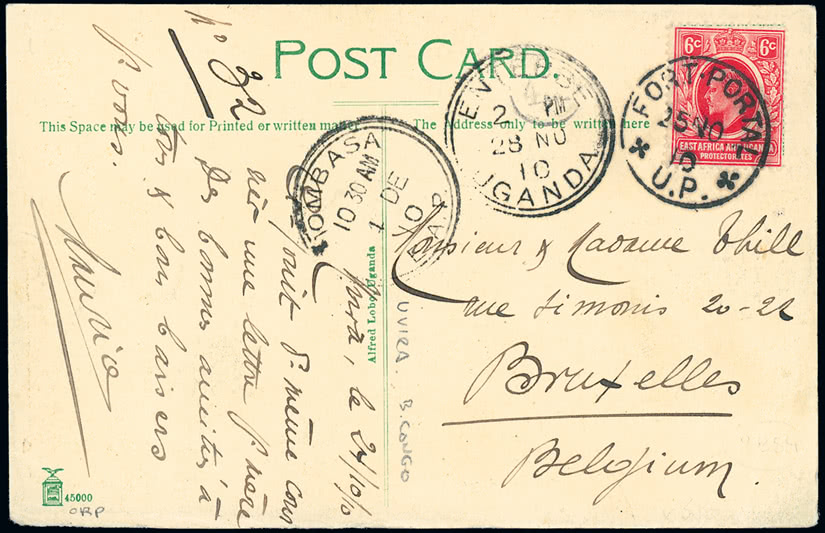 POST CARD.
This Space may be used for Printed or written matter
The Address only to be written here
6c 6c
EAST AFRICA AND UGANDA
PROTECTORATES
FORT·PORTAL
25 NO
10
U.P.
ENTEBBE
2 PM
28 NO
10
UGANDA
MOMBASA
10 30 AM
1 DE
10
Monsieur & Madame Thill
rue Simonis 20-22
Bruxelles
Belgium
No 32
le 24/10/10
même
une lettre
De bonnes amitiés à
& bons baisers
à vous.
Alfred Lobo, Uganda
UVIRA, B. CONGO
45000
ORP